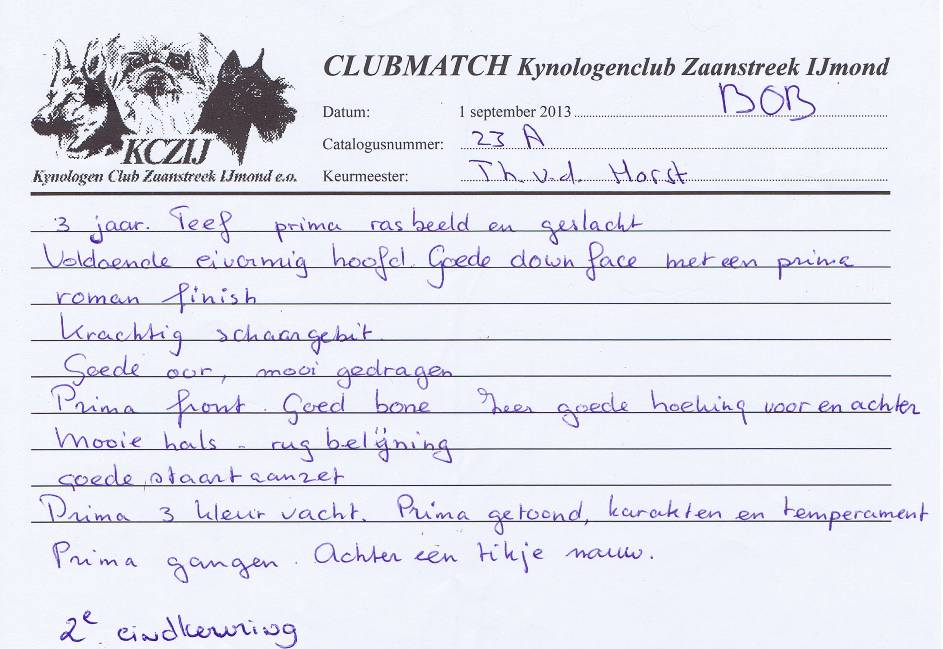 CLUBMATCH Kynologenclub Zaanstreek IJmond
Datum: 1 september 2013 BOB
Catalogusnummer: 23 A
Keurmeester: Th. v.d. Horst
KCZIJ
Kynologen Club Zaanstreek IJmond e.o.
3 jaar. Teef prima rasbeeld en geslacht
Voldoende eivormig hoofd. Goede down face met een prima
roman finish
Krachtig schaargebit.
Goede oor, mooi gedragen
Prima front. Goed bone Zeer goede hoeking voor en achter
Mooie hals - rug belijning
goede staartaanzet
Prima 3 kleur vacht. Prima getoond, karakter en temperament
Prima gangen. Achter een tikje nauw.
2e eindkeuring